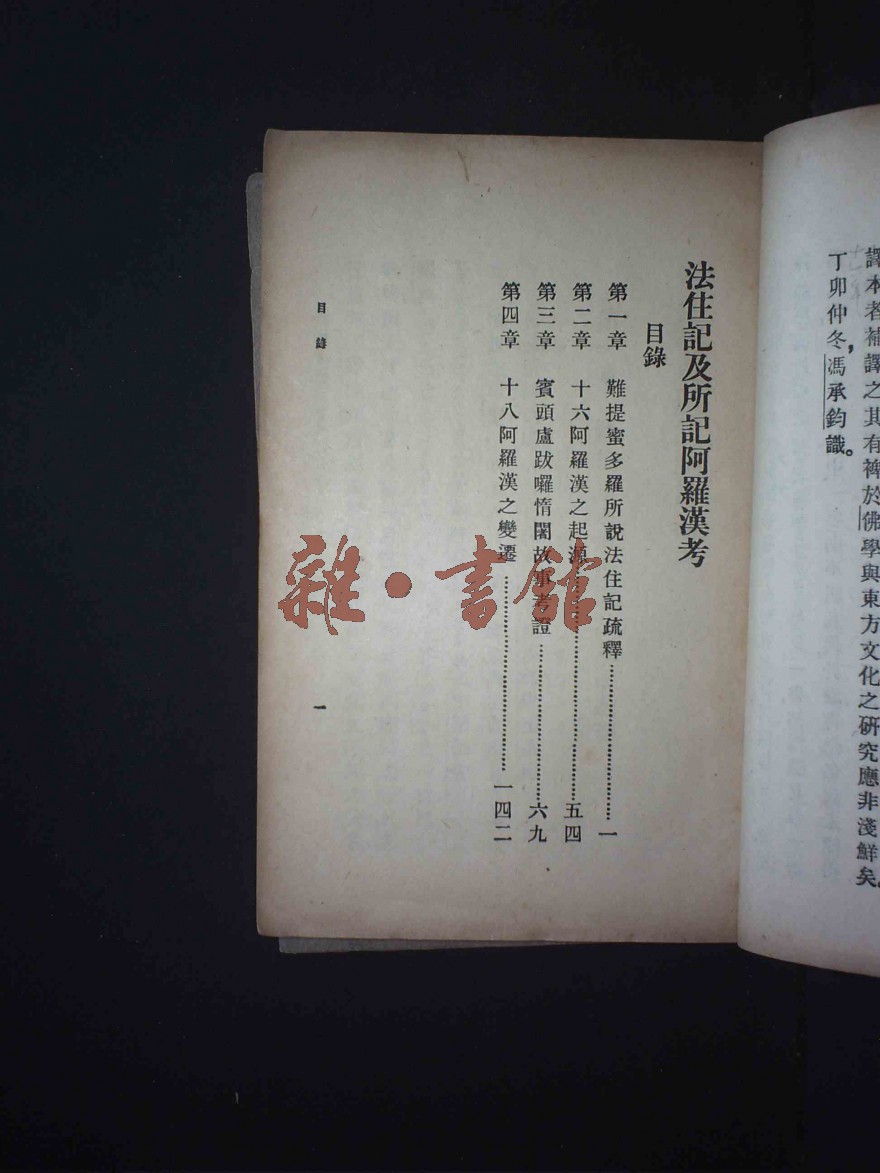 譯本者補譯之其有裨於佛學與東方文化之研究應非淺鮮矣。
丁卯仲冬，馮承鈞識。
法住記及所記阿羅漢考
目錄
第一章　難提蜜多羅所說法住記疏釋……一
第二章　十六阿羅漢之起源……五四
第三章　賓頭盧跋囉惰闍故事考證……六九
第四章　十八阿羅漢之變遷……一四二
目錄　一
雜·書館